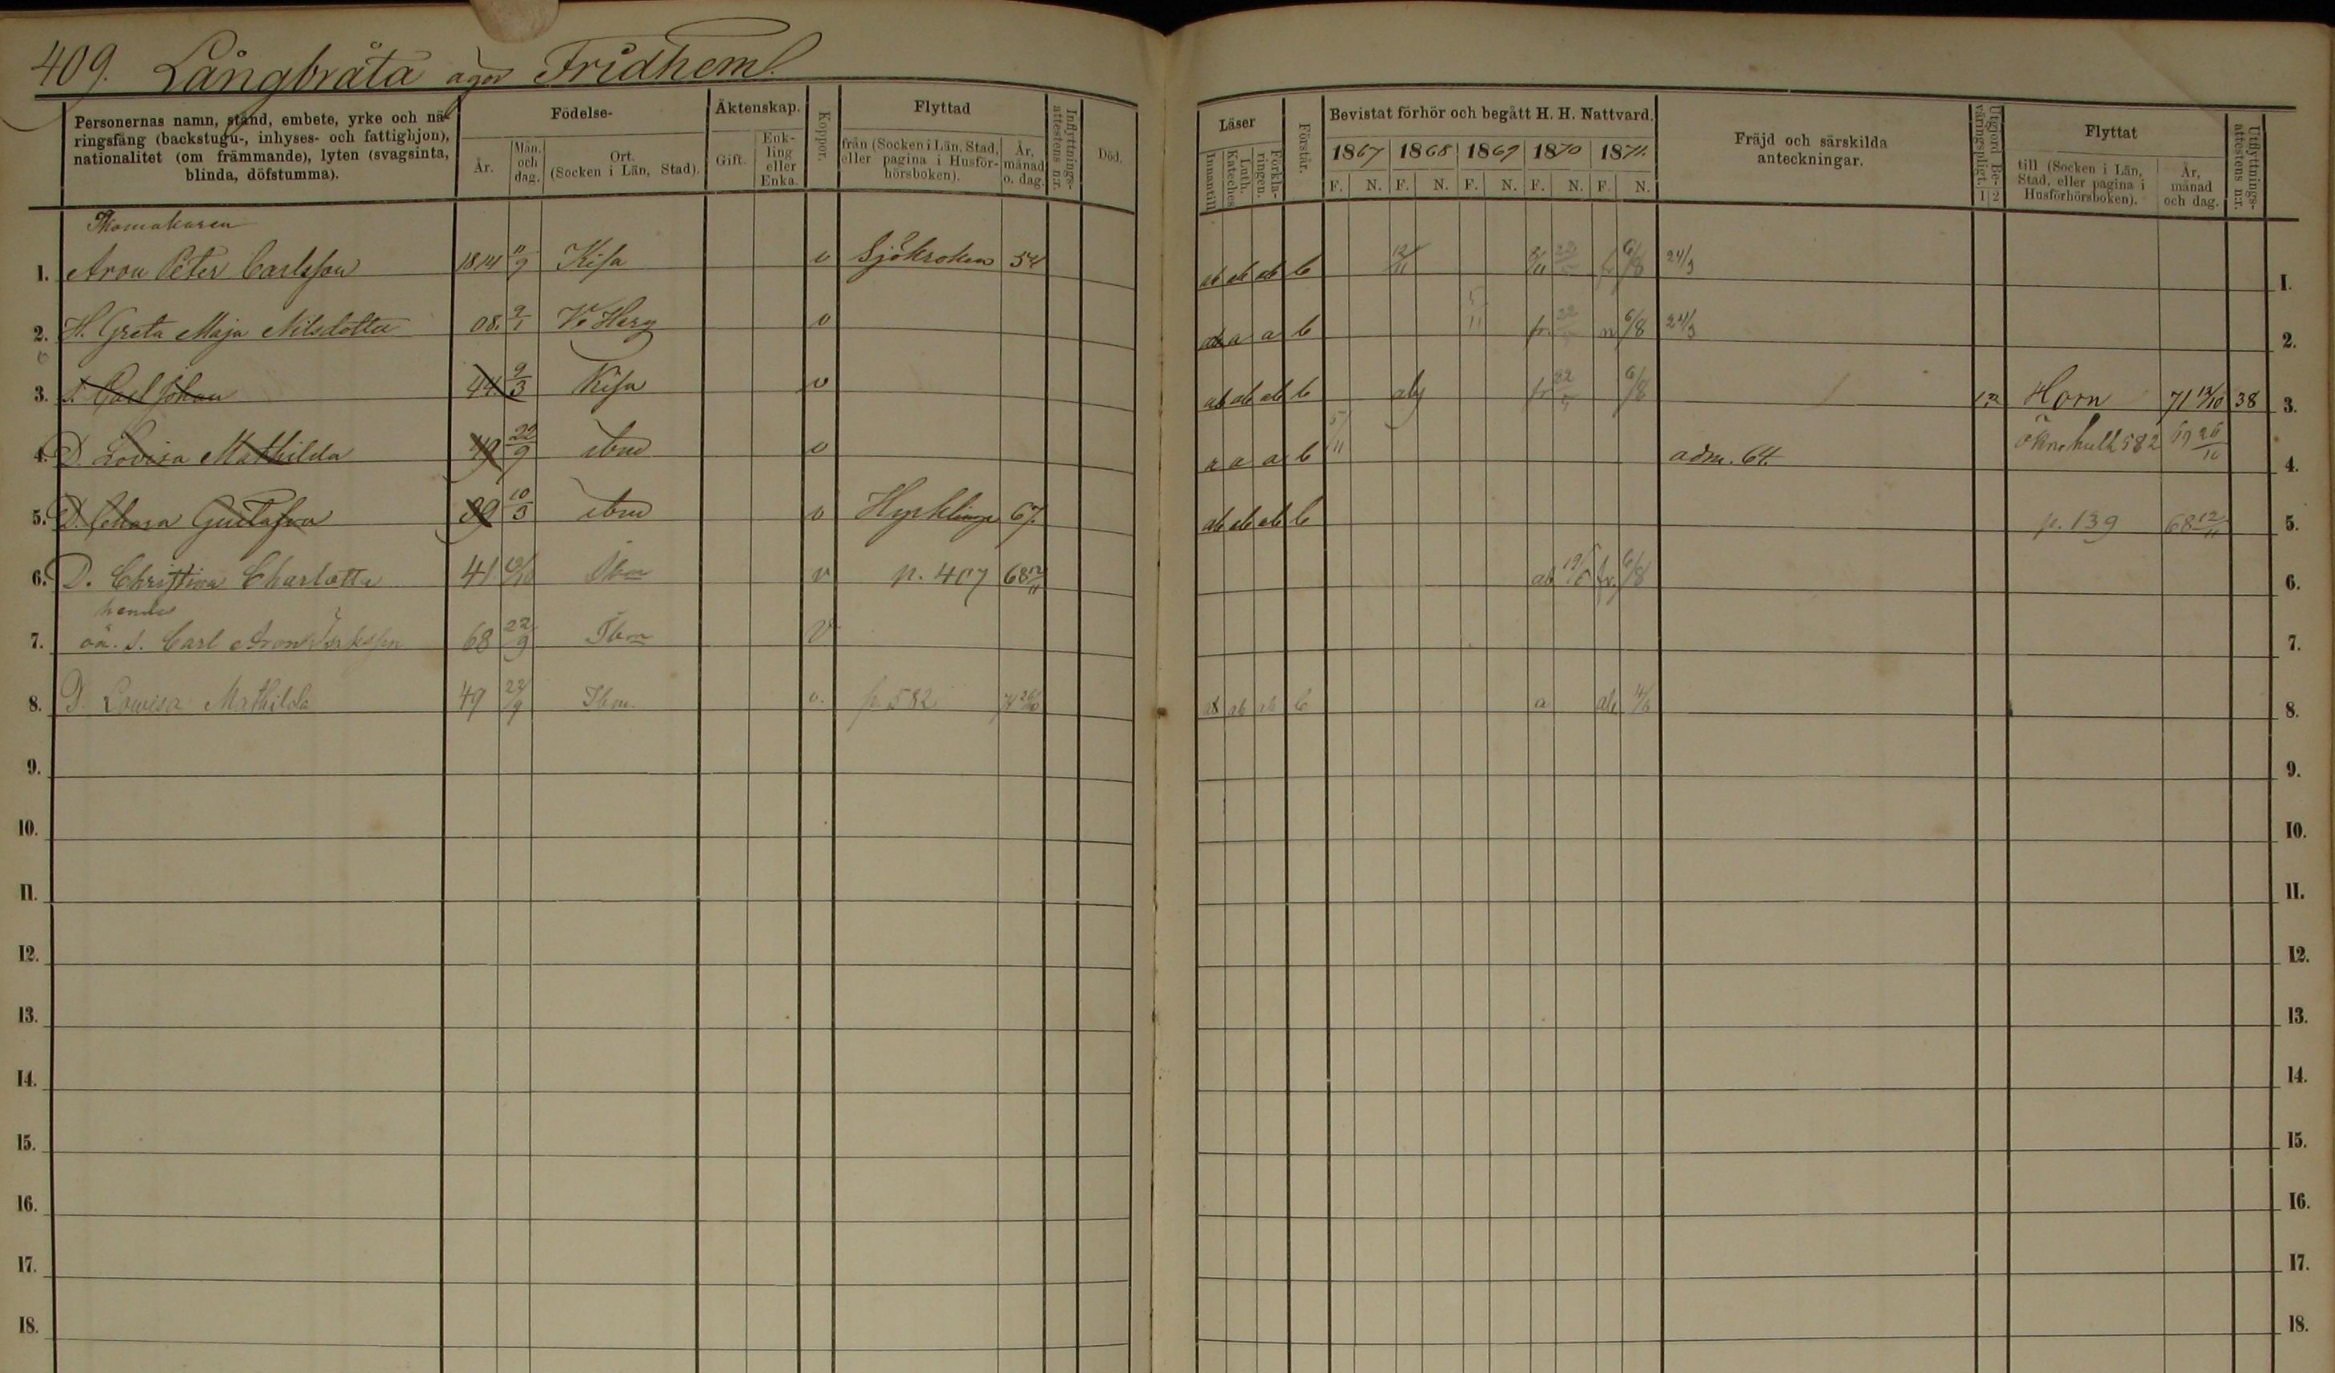 409. Långbråta ägor Fridhem
Personernas namn, stånd, embete, yrke och näringsfång (backstugu-, inhyses- och fattighjon), nationalitet (om främmande), lyten (svagsinta, blinda, döfstumma).
Födelse-
År.
Mån. och dag.
Ort. (Socken i Län, Stad).
Äktenskap.
Gift.
Enkling eller Enka.
Koppor.
Flyttad
från (Socken i Län, Stad, eller pagina i Husförhörsboken).
År, månad o. dag.
Inflyttningsattestens n:r.
Död.
Läser
Innantill
Luth. Kateches
Förklaringen.
Förstår.
Bevistat förhör och begått H. H. Nattvard.
1867 1868 1869 1870 1871.
F. N. F. N. F. N. F. N. F. N.
Fräjd och särskilda anteckningar.
Utgjord Beväringspligt.
1 2
Flyttat
till (Socken i Län, Stad, eller pagina i Husförhörsboken).
År, månad och dag.
Utflyttningsattestens n:r.
1. Aron Peter Carlsson 1814 11/9 Kisa v Sjökroken 54 ab ab ab b 12/11 6/8 24/3 1.
2. H. Greta Maja Nilsdotter 08. 9/1 V. Harg v a a b 5/11 fr 22 n 6/8 24/3 2.
3. S. Carl Johan 44 9/3 Kisa v ab ab ab b fr 22 6/8 12 Horn 71 12/10 38 3.
4. D. Lovisa Mathilda 49 22/9 ibm v a a a b 5/11 adm. 64. 582 69 26/10 4.
5. D. Gustafva 39 10/5 ibm v Hycklinge 67. ab ab ab b p. 139 68 12/11 5.
6. D. Christina Charlotta 41 10/10 Ibm v p. 407 68 12/11 ab 19/6 fr. 6/8 6.
hennes
7. oä. s. Carl Aron 68 22/9 Ibm v 7.
8. D. Lovisa Mathilda 49 22/9 Ibm. v. p. 582 ab ab ab b a ab 4/6 8.
9. 9.
10. 10.
11. 11.
12. 12.
13. 13.
14. 14.
15. 15.
16. 16.
17. 17.
18. 18.